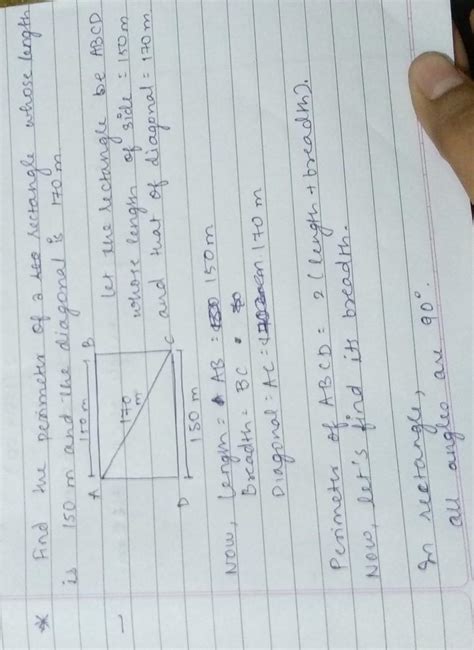 * Find the perimeter of a rectangle whose length
is 150 m and the diagonal is 170 m.
A 150 m B
170
m
D C
150 m
- let the rectangle be ABCD
whose length of side = 150 m
and that of diagonal = 170 m
Now, length = AB = 150 m
Breadth = BC
Diagonal = AC = 170 m
Perimeter of ABCD = 2 (length + breadth).
Now, let's find its breadth.
In rectangle,
all angles are 90°.